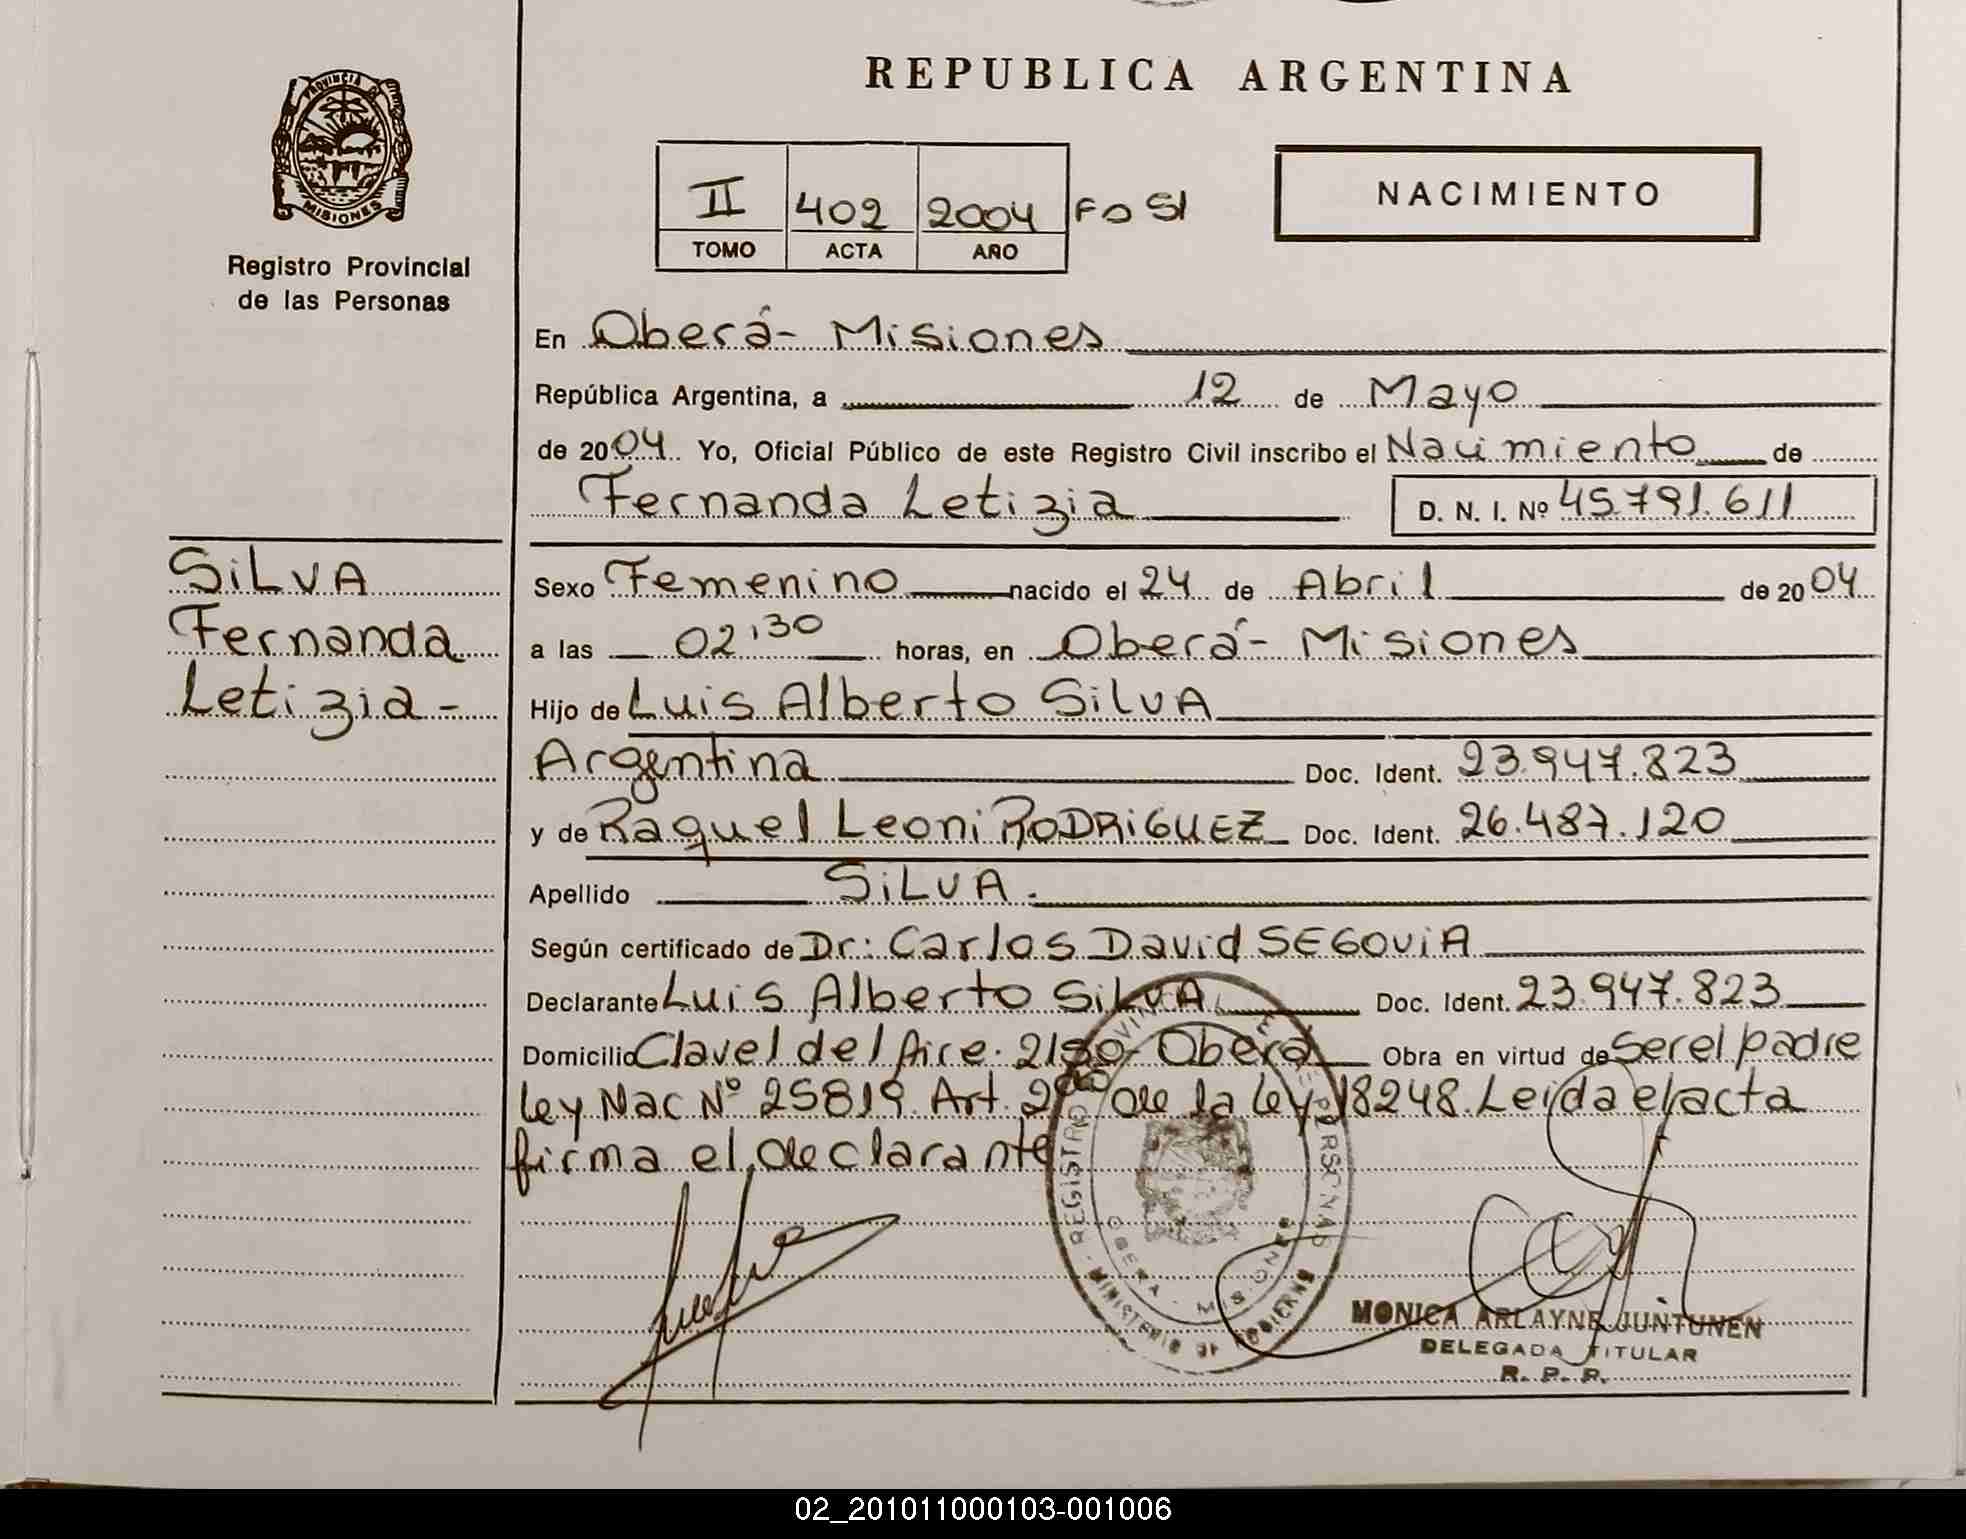 REPUBLICA ARGENTINA
PROVINCIA D
MISIONES
Registro Provincial
de las Personas
II 402 2004 Fo 51
TOMO ACTA AÑO
NACIMIENTO
En Oberá - Misiones
República Argentina, a 12 de Mayo
de 2004 Yo, Oficial Público de este Registro Civil inscribo el Nacimiento de
Fernanda Letizia D. N. I. Nº 45.791.611
SILVA
Fernanda
Letizia -
Sexo Femenino nacido el 24 de Abril de 2004
a las 02,30 horas, en Oberá - Misiones
Hijo de Luis Alberto SilVA
Argentina Doc. Ident. 23.947.823
y de Raquel Leoni RODRIGUEZ Doc. Ident. 26.487.120
Apellido SILVA.
Según certificado de Dr: Carlos David SEGOVIA
Declarante Luis Alberto SilVA Doc. Ident. 23.947.823
Domicilio Clavel del Aire. Oberá Obra en virtud de Ser el padre
Ley Nac Nº 25819 Art. de la Ley 18248. Leida el acta
firma el declarante
REGISTRO PERSONAS
OBERA - MISIONES
MINISTERIO DE GOBIERNO
MONICA ARLAYNE JUNTUNEN
DELEGADA TITULAR
R. P. P.
02_201011000103-001006